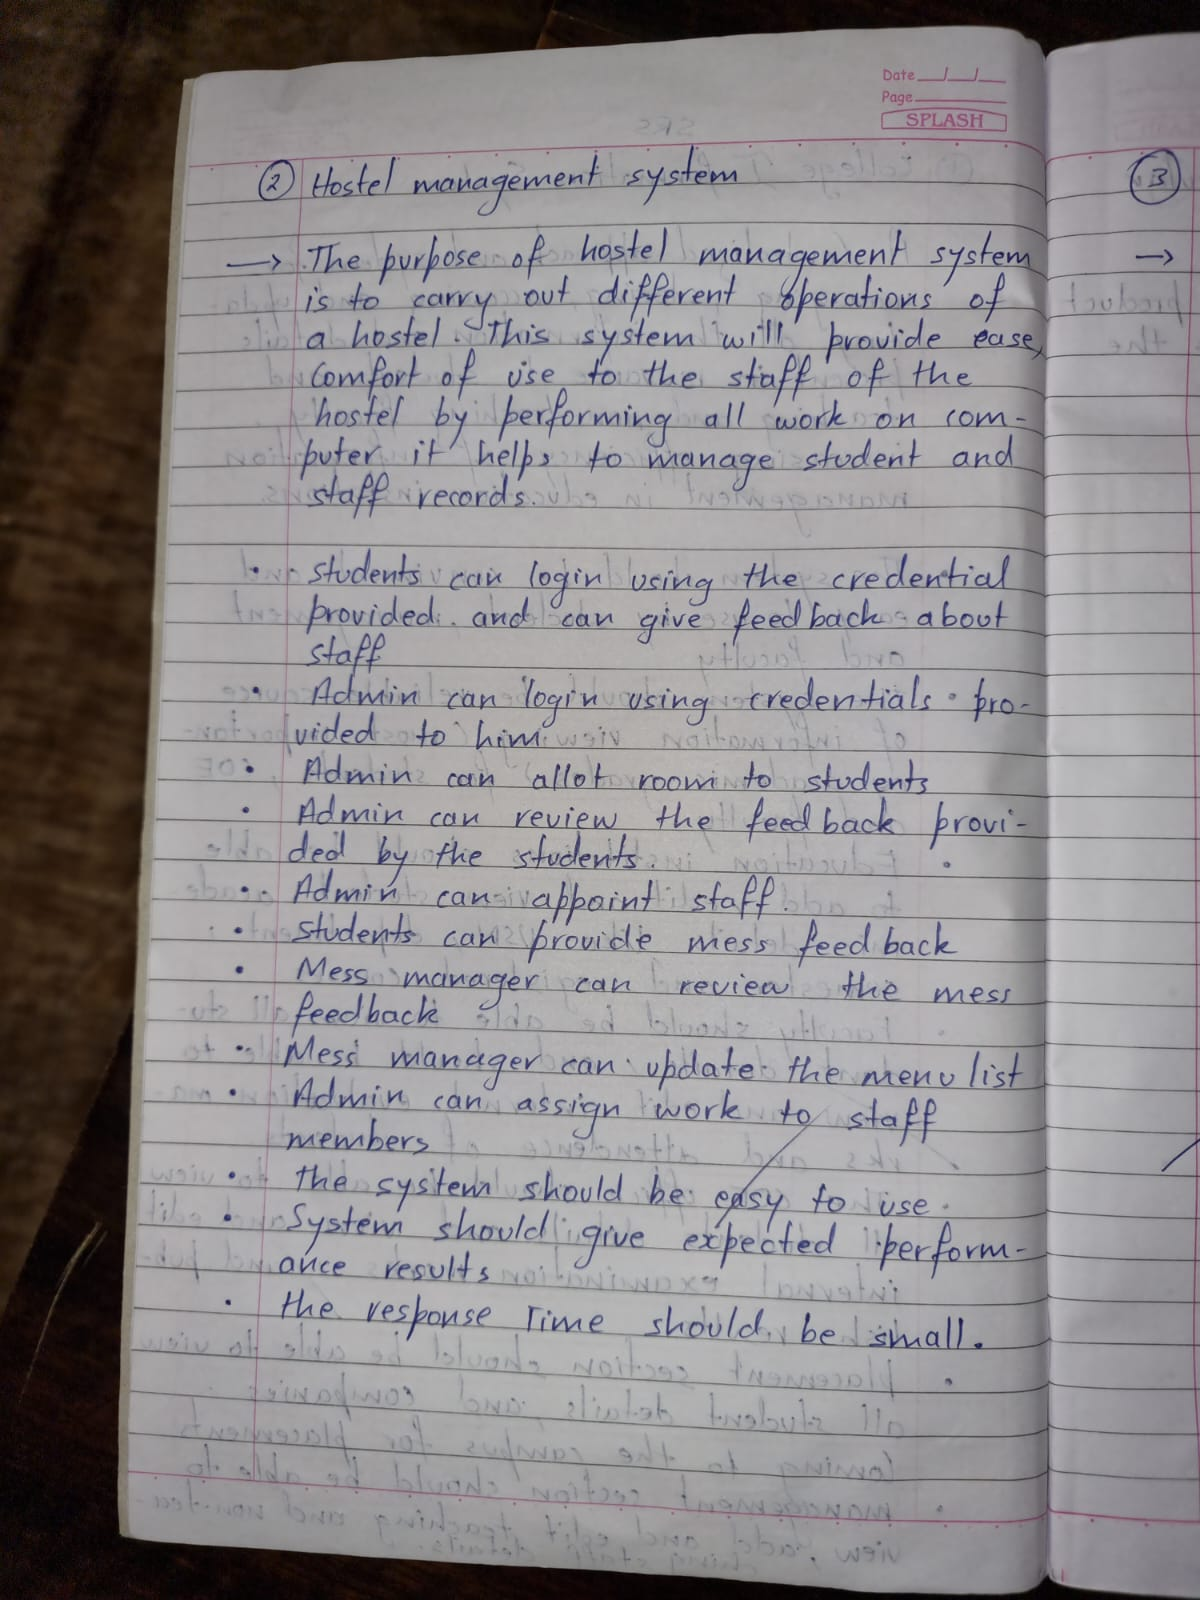 Date
Page
SPLASH
② Hostel management system
→ The purpose of hostel management system
is to carry out different operations of
a hostel. This system will provide ease,
comfort of use to the staff of the
hostel by performing all work on com-
puter it helps to manage student and
staff records.
• students can login using the credential
provided. and can give feedback about
staff
• Admin can login using credentials pro-
vided to him
• Admin can allot room to students
• Admin can review the feedback provi-
ded by the students.
• Admin can appoint staff.
• students can provide mess feedback
• Mess manager can review the mess
feedback
• Mess manager can update the menu list
• Admin can assign work to staff
members
• the system should be easy to use.
• System should give expected perform-
ance results
• the response Time should be small.
③
→